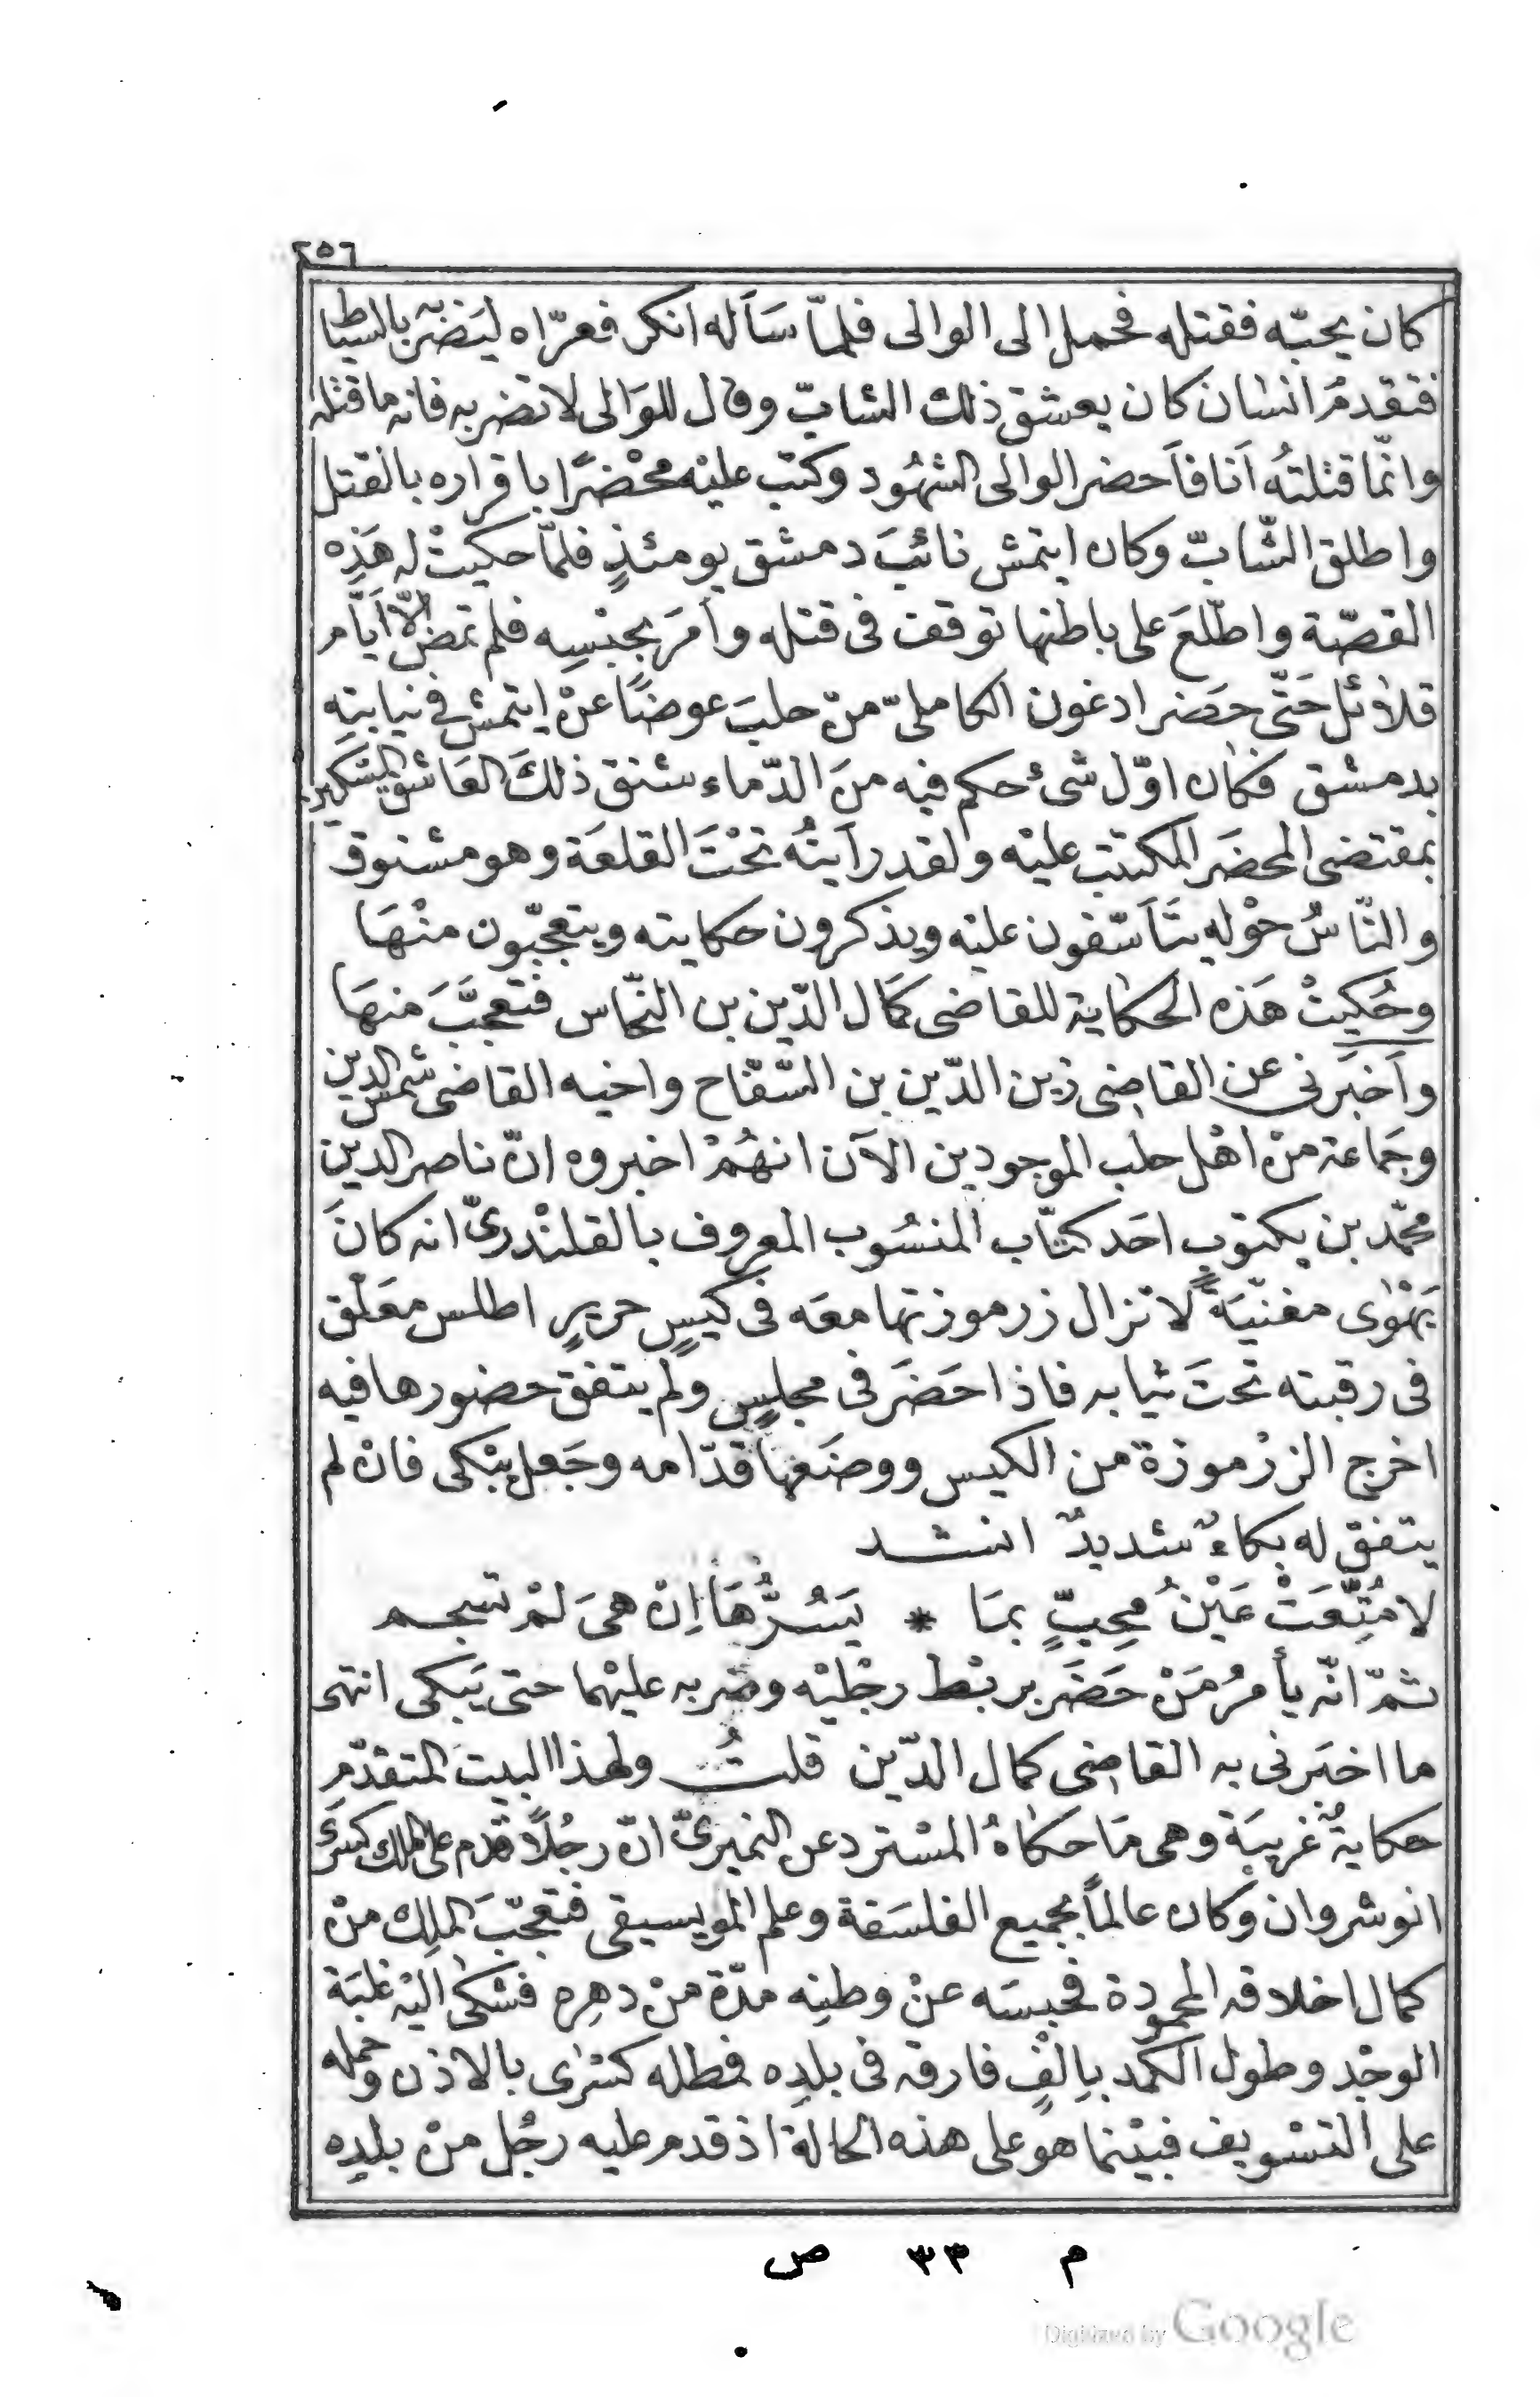 ٢٥٦
كان يحبّه فقتله فحمل الى الوالى فلمّا سَاَله انكر فعرّاه ليَضربه بالسياط
فتقدمُ انسٰان كان يعشق ذلك الشابّ وقال للوَالى لا تضربه فانه ما قتله
وانّما قتلتُه اَنا فاَحضر الوالى الشهُود وكتب عليْه محْضرًا باقراره بالقتل
واطلق الشّابّ وكان ايتمش نائبَ دمشق يومئذٍ فلمّا حكيتْ له هَذِه
القصّة واطّلعَ على باطنها توقف فى قتله وأمرَ بحبْسِه فلم تمض الّا أيّام
قلائل حَتّى حضَر ارغون الكاملىّ منْ حلبَ عوضًا عنْ ايتمش فى نيابتِه
بدمشق فكان اوّل شئ حكم فيه منَ الدّماء شنق ذلكَ العَاشق المسْكين
بمقتضى المحضَر المكتتب عليْه ولقد رأيتُه تحْتَ القلعَة وهو مشنوق
والنّاسُ حوْله يتَاَسّفون عليْه ويذكرون حكايته ويتعجّبون منْهَا
وحُكيتْ هَذه الحكاية للقاضى كمَال الدّين بن النحّاس فتعجَّبَ منهَا
واَخبَرنى عن القاضى زين الدّين بن السَّفّاح واخيه القاضى شمس الدين
وجَماعة منْ اهْل حلب الموجودين الآن انهُمْ اخبروه انّ ناصر الدين
محمّد بن بكتوب احَد كتّاب المنسُوب المعروف بالقلنْدرىّ انه كانَ
يَهْوٰى مغنّيَةً لا تزال زرموزتها معَه فى كيسٍ حريرٍ اطلس معَلّق
فى رقبته تحتَ ثيابه فاذا حَضَر فى مجلسٍ ولم يتفق حضورها فيه
اخرج الزرْموزة من الكيس ووضَعها قدّامه وجَعل يبْكى فانْ لم
يتفقْ له بكاءٌ شديدٌ انشد
لا مُتِّعَتْ عَيْنُ مُحِبٍّ بمَا * يَسُرُّهَا اِنْ هىَ لَمْ تسجم
ثمّ انّه يأمرُ مَنْ حَضَر بربْط رجْليْه وضربه عليْهما حتى يَبكى انتهى
ما اخبَرنى به القاضى كمال الدّين قلتُ ولهذا البيت المتقدّم
حكايةٌ غريبَة وهى مَا حكاهُ المسْترد عن النميرىّ انّ رجُلًا قدم على الملك كسْرى
انوشروان وكان عالماً بجميع الفلسَفة وعلم المويسيقى فتعجّبَ الملِك منْ
كمال اخلاقه المحمودة فحبسَه عنْ وطنِه مدّة منْ دهِره فشكى اليْه غلبَة
الوجْد وطول الكمد بإلْفٍ فارقه فى بلدِه فمطله كسْرٰى بالاذن وحمله
على التسْويف فبيْنما هو على هذه الحالة اذ قدم عليه رجُل منْ بلدِه
م ٣٣ ص
Digitized by Google